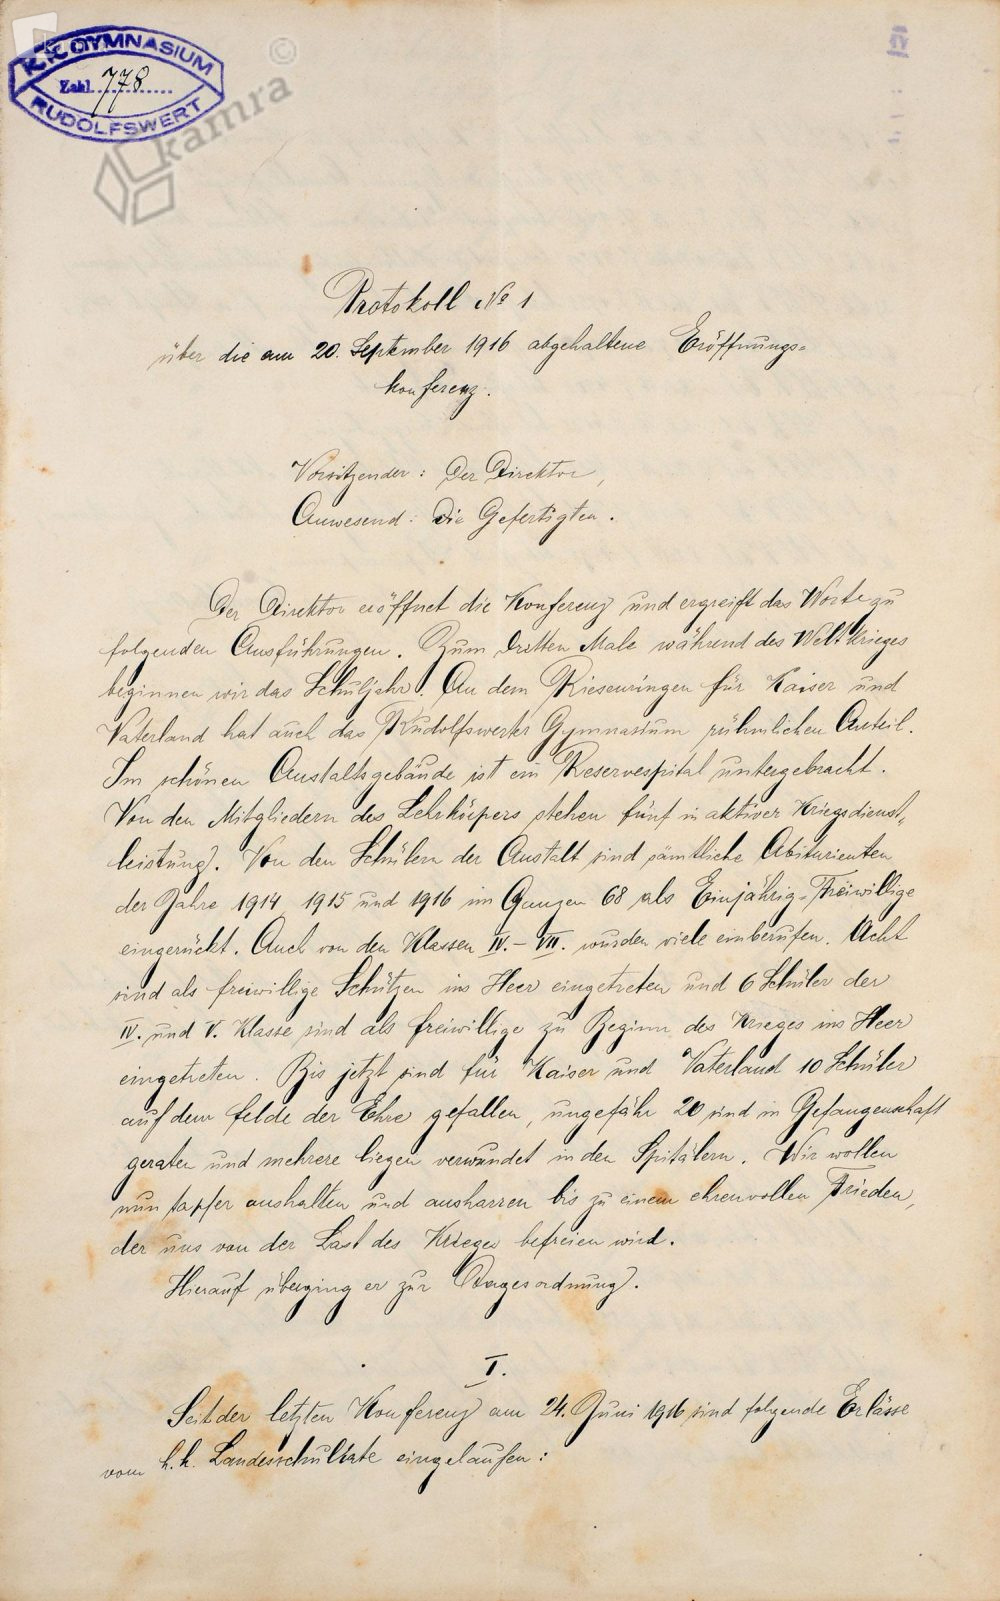 K.K. GYMNASIUM
Zahl 778
RUDOLFSWERT
kamra ©
Protokoll No 1
über die am 20. September 1916 abgehaltene Eröffnungs=
konferenz.
Vorsitzender: Der Direktor,
Anwesend: Die Gefertigten.
Der Direktor eröffnet die Konferenz und ergreift das Wort zu
folgenden Ausführungen. Zum dritten Male während des Weltkrieges
beginnen wir das Schuljahr. An dem Riesenringen für Kaiser und
Vaterland hat auch das Rudolfswerter Gymnasium rühmlichen Anteil.
Im schönen Anstaltsgebäude ist ein Reservespital untergebracht.
Von den Mitgliedern des Lehrkörpers stehen fünf in aktiver Kriegsdienst=
leistung. Von den Schülern der Anstalt sind sämtliche Abiturienten
der Jahre 1914, 1915 und 1916 im Ganzen 68 als Einjährig=Freiwillige
eingerückt. Auch von den Klassen IV.–VII. wurden viele einberufen. Acht
sind als freiwillige Schützen ins Heer eingetreten und 6 Schüler der
IV. und V. Klasse sind als freiwillige zu Beginn des Krieges ins Heer
eingetreten. Bis jetzt sind für Kaiser und Vaterland 10 Schüler
auf dem felde der Ehre gefallen, ungefähr 20 sind in Gefangenschaft
geraten und mehrere liegen verwundet in den Spitälern. Wir wollen
nun tapfer aushalten und ausharren bis zu einem ehrenvollen Frieden,
der uns von der Last des Krieges befreien wird.
Hierauf überging er zur Tagesordnung.
I.
Seit der letzten Konferenz am 24. Juni 1916 sind folgende Erlässe
vom k.k. Landesschulrate eingelaufen: